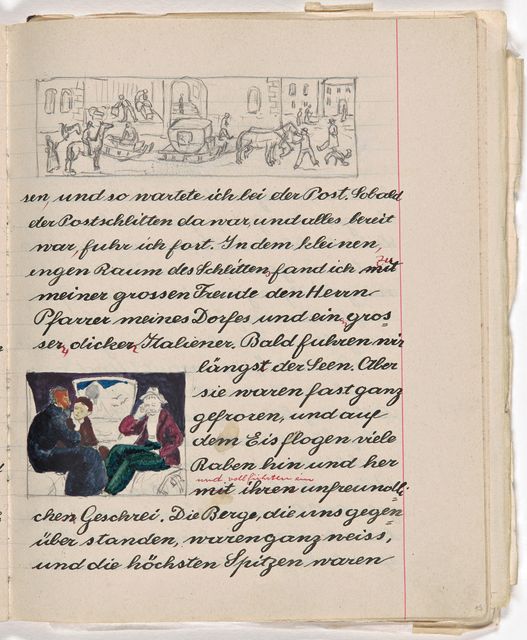 sen, und so wartete ich bei der Post. Sobald
der Postschlitten da war, und alles bereit
war, fuhr ich fort. In dem kleinen,
engen Raum des Schlitten, fand ich mit zu
meiner grossen Freude den Herrn
Pfarrer meines Dorfes und ein gros=
ser, dicker Italiener. Bald fuhren wir
längst der Seen. Aber
sie waren fast ganz
gefroren, und auf
dem Eis flogen viele
Raben hin und her
und vollführten ein
mit ihren unfreundli=
chen Geschrei. Die Berge, die uns gegen=
über standen, waren ganz weiss,
und die höchsten Spitzen waren